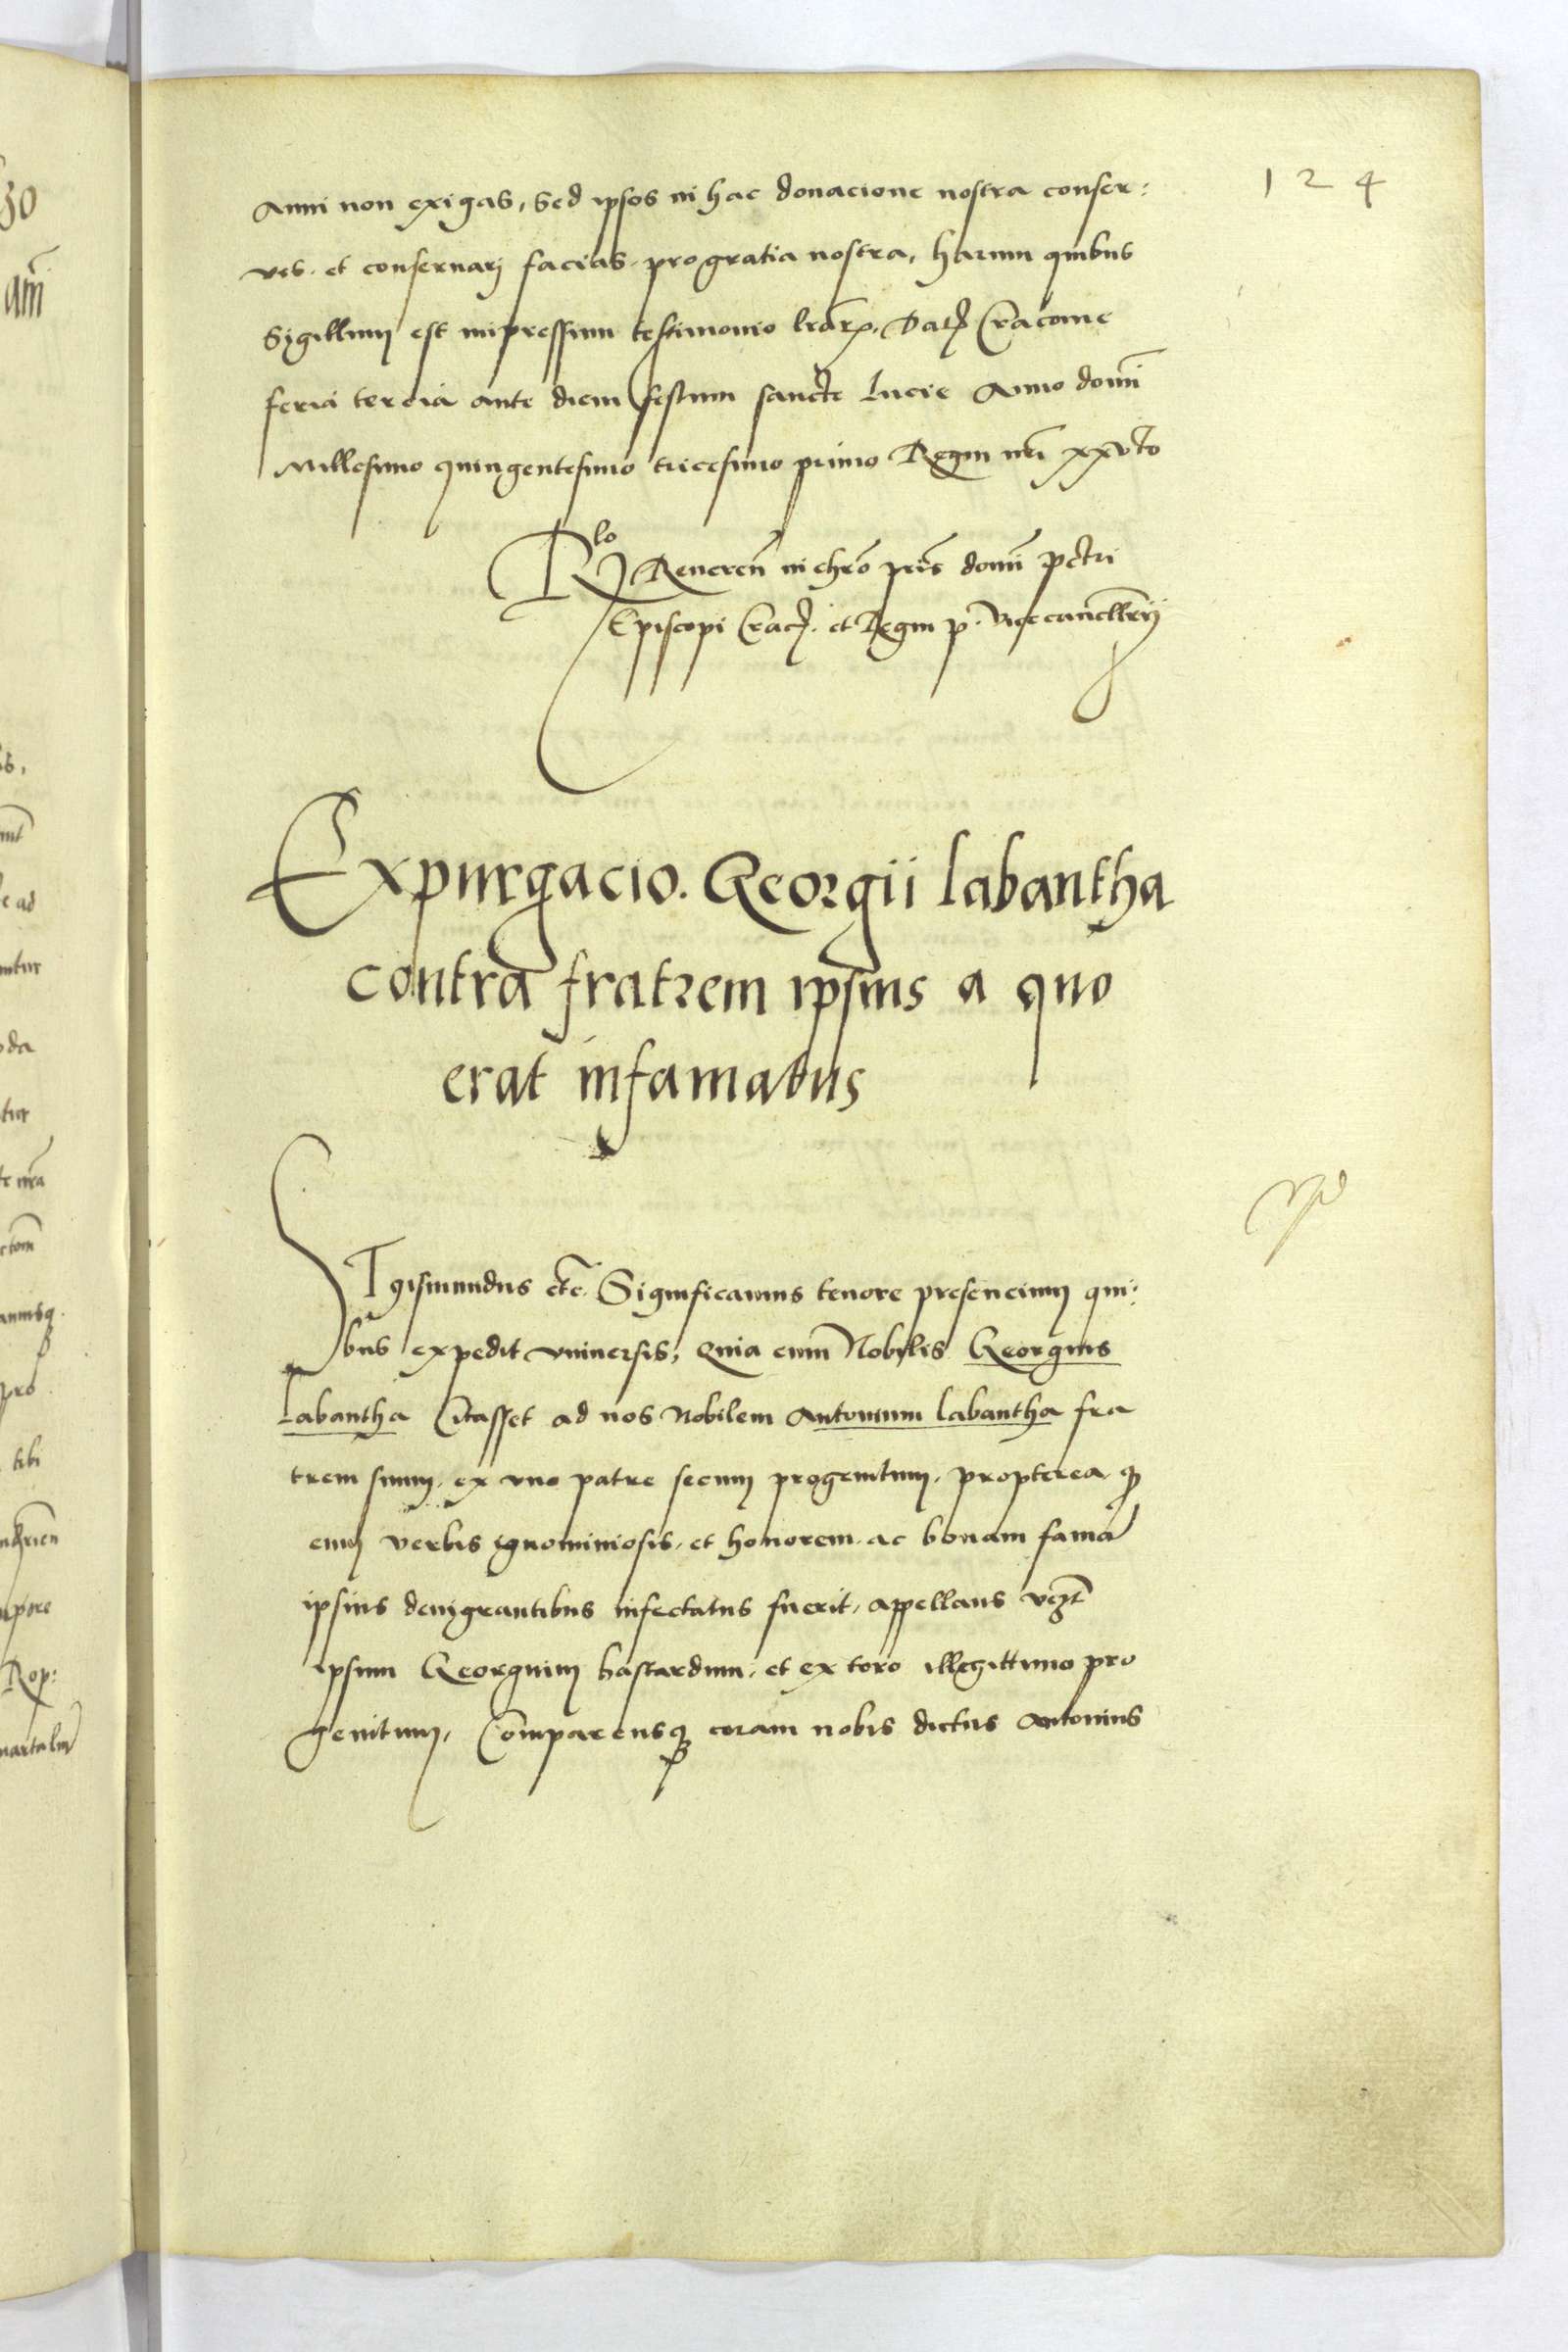 124
Anni non exigas, Sed ipsos in hac donacione nostra conser:
ves. et conseruarj facias. pro gratia nostra, harum quibus
Sigillum est impressum testimonio lrarum. Dat Cracouie
feria tercia ante diem festum sancte Lucie Anno domi
Millesimo quingentesimo tricesimo primo Regni nri xxvto
Rlo Reueren in chro pris domi Petri
Episcopi Crac. et Regni p. Vicecancllrij
Expurgacio. Georgii labantha
contra fratrem ipsius a quo
erat infamatus
SIgismundus etc. Significamus tenore presencium qui:
bus expedit vniuersis, Quia cum Nobilis Georgius
Labantha Citasset ad nos Nobilem Antonium labantha fra
trem suum. ex vno patre secum progenitum. propterea q
eum verbis ignominiosis. et honorem. ac bonam fama
ipsius denigrantibus infectatus fuerit, appellans vezt
ipsum Georgium bastardum. et ex toro illegittimo pro
genitum, Comparensq coram nobis dictus Antonius